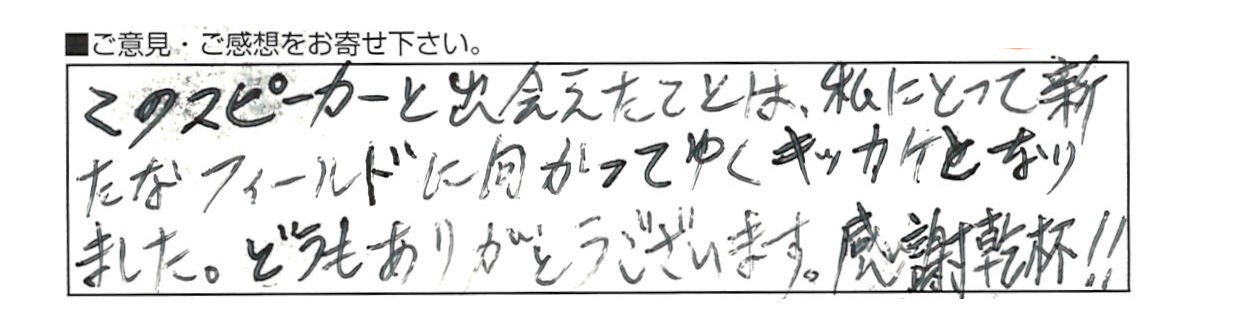 ■ご意見・ご感想をお寄せ下さい。
このスピーカーと出会えたことは、私にとって新
たなフィールドに向かってゆくキッカケとなり
ました。どうもありがとうございます。感謝乾杯!!